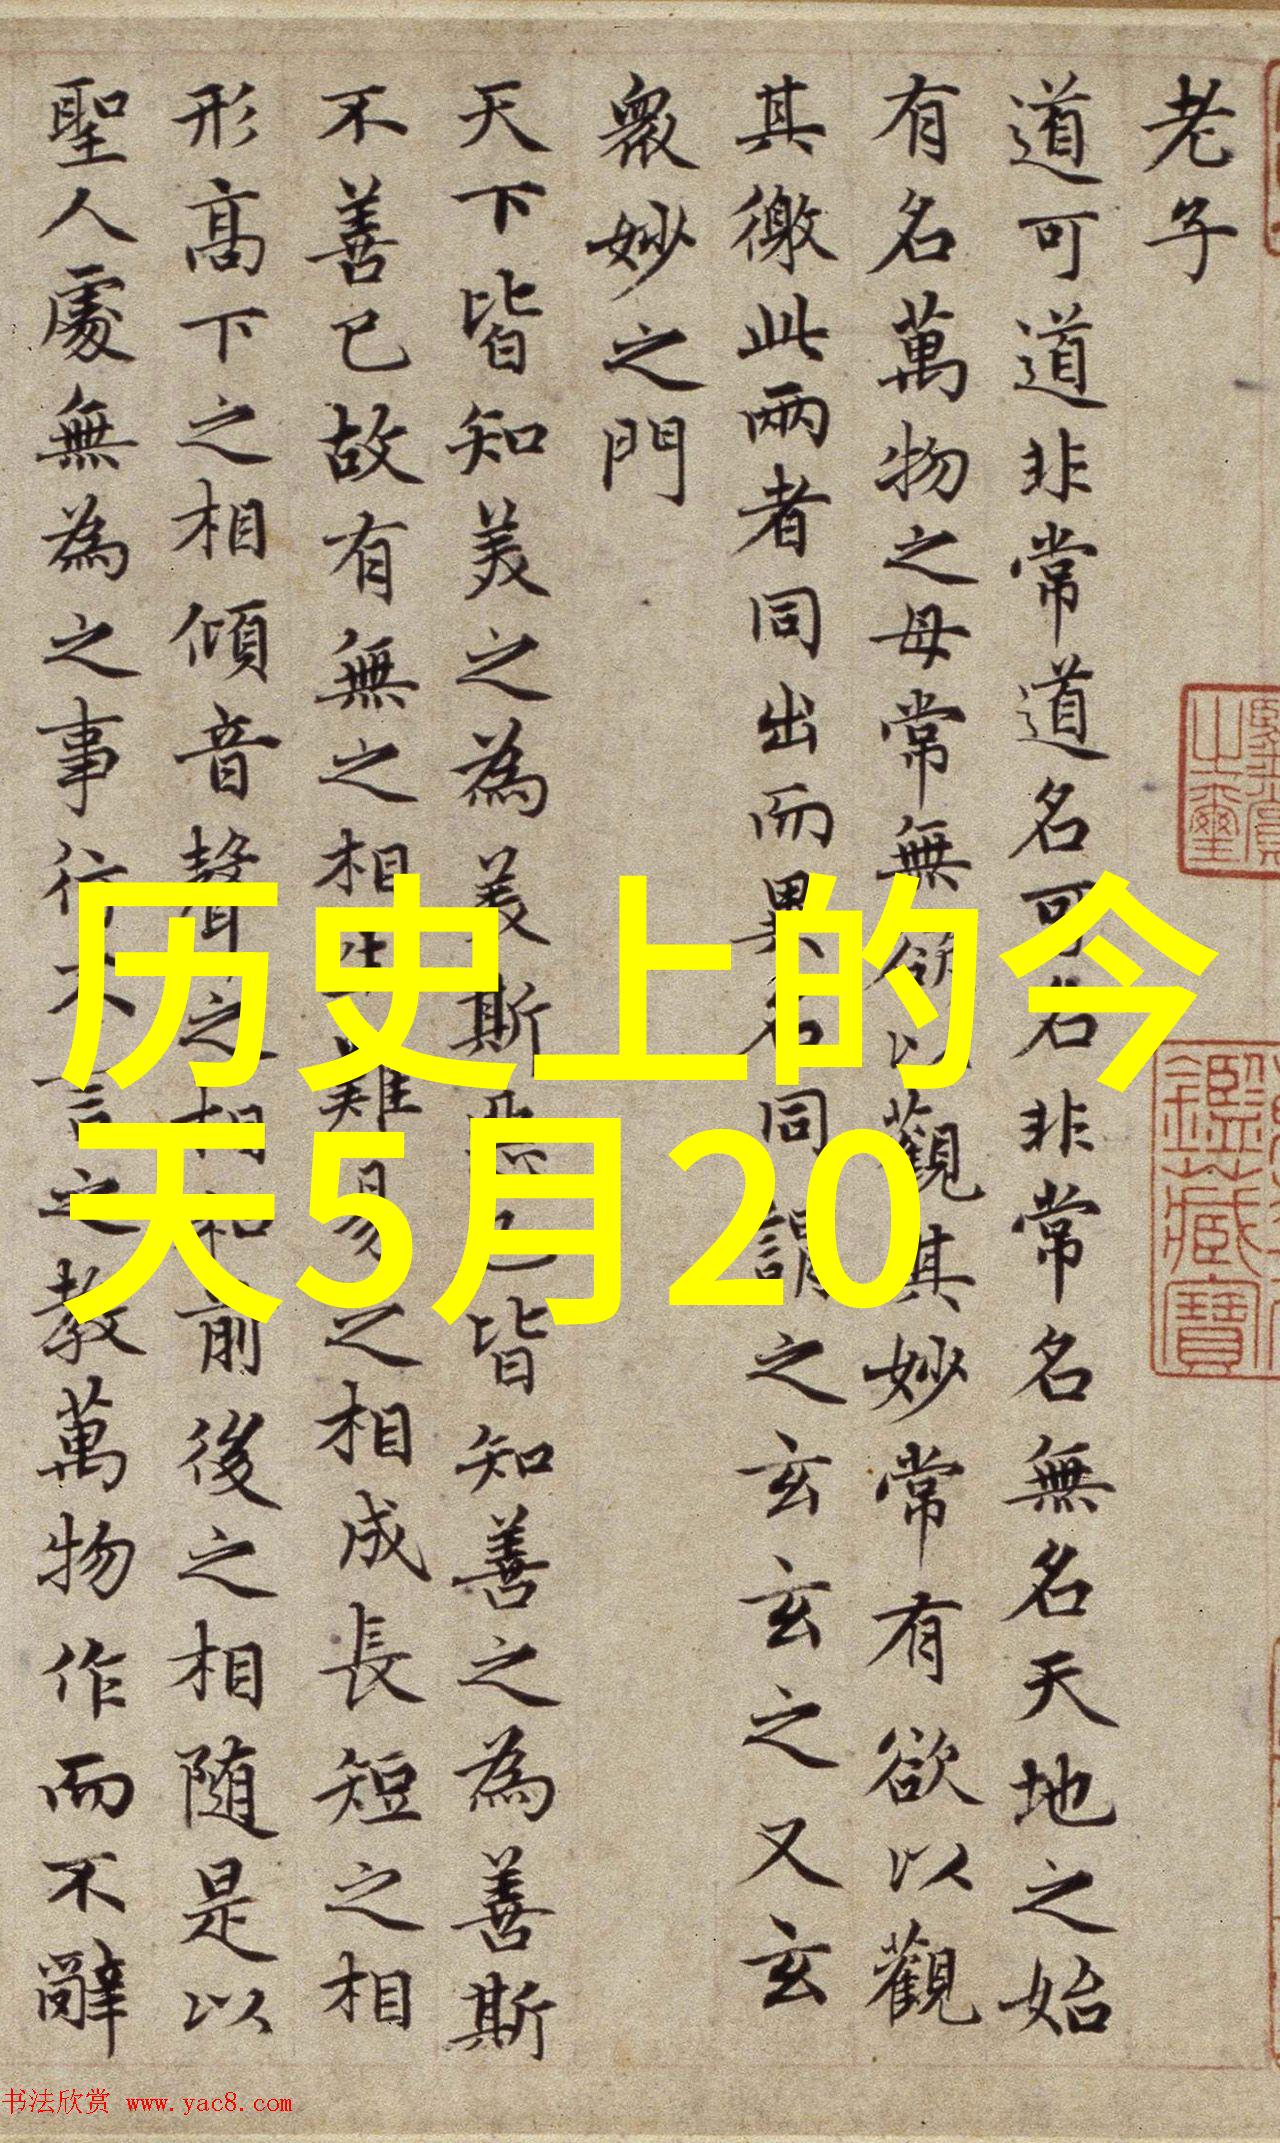 老子
道可道非常道名可名非常名無名天地之始
有名萬物之母常無欲以觀其妙常有欲以觀
其徼此兩者同出而異名同謂之玄玄之又玄
衆妙之門
天下皆知美之為美斯惡已皆知善之為善斯
不善已故有無之相生難易之相成長短之相
形高下之相傾音聲之相和前後之相随是以
聖人處無為之事行不言之教萬物作而不辭
历史上的今
天5月20
之璽
鑑藏寶
书法欣赏 www.yac8.com